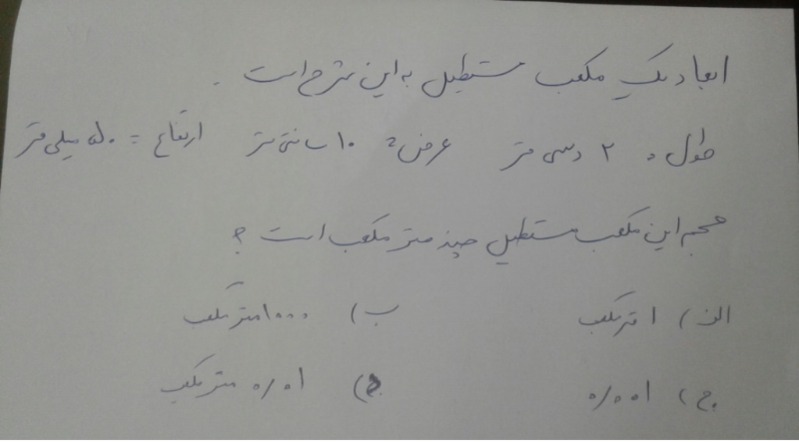 ابعاد یک مکعب مستطیل به این شرح است.
طول = ۲ دسی متر عرض = ۱۰ سانتی متر ارتفاع = ۵۰ میلی متر
حجم این مکعب مستطیل چند متر مکعب است ؟
الف) ۱ متر مکعب ب) ۱۰۰۰ متر مکعب
ج) ۰/۰۰۱ د) ۰/۰۱ متر مکعب